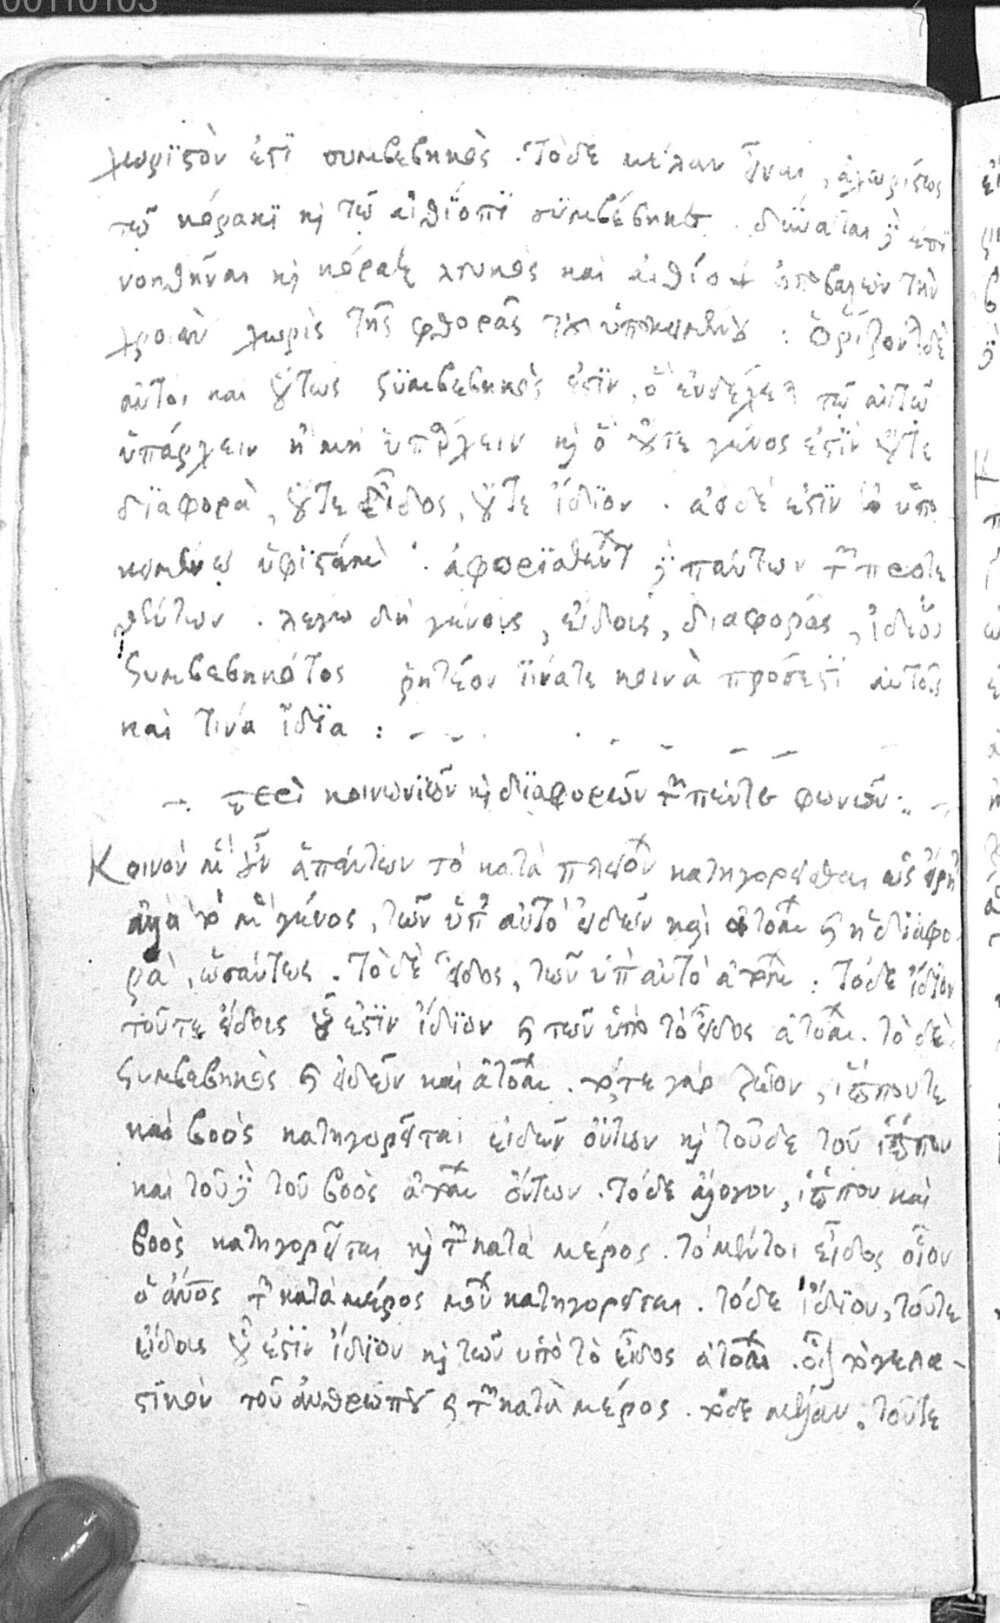 00110103
χωριστὸν ἐστὶ συμβεβηκὸς. Τὸδε μέλαν εἶναι, ἀχωρίστως
τῷ κόρακϊ κ̀ τῷ αἰθίοπϊ σϋμβέβηκε. δύναται δ̀ ἐπϊ
νοηθῆναι κ̀ κόραξ λευκὸς καὶ αἰθίοψ ἀποβαλὼν τὴν
χροιὰν χωρὶς τῆς φθορᾶς τοῦ ὑποκειμένου : Ὁρίζονται δὲ
αὐτὸ, καὶ οὕτως συμβεβηκός ἐστϊν, ὃ ἐνδέχεται τῷ αὐτῷ
ὑπάρχειν ἢ μὴ ὑπάρχειν κ̀ ὃ οὔτε γένος ἐστϊν οὔτε
διαφορὰ, οὔτε εἶδος, οὔτε ἴδϊον. ἀεὶ δέ ἐστϊν ἐν ὑπο
κειμένῳ ὑφϊστάμενον. ἀφωρϊσμένων δ̀ πάντων τῶν προτε
θέντων. λέγω δὴ γένους, εἴδους, διαφορᾶς, ἰδίου
συμβεβηκότος ῥητέον τίνα τε κοινὰ πρόσεστϊ αὐτοῖς
καὶ τινά ἴδϊα : -
περὶ κοινωνιῶν κ̀ διαφορῶν τῶν πέντε φωνῶν :
Κοινὸν μὲν οὖν ἁπάντων τὸ κατὰ πλειόνων κατηγορεῖσθαι ὡς εἴρηται
ἀλλὰ τὸ μὲν γένος, τῶν ὑπ' αὐτὸ εἰδῶν καὶ ἀτόμων κ̀ ἡ διαφο
ρὰ, ὡσαύτως. Τὸ δὲ εἶδος, τῶν ὑπ' αὐτὸ ἀτόμων : Τόδε ἴδϊον
τοῦτε εἴδους οὗ ἐστϊν ἴδϊον κ̀ τῶν ὑπὸ τὸ εἶδος ἀτόμων. τὸ δὲ
συμβεβηκὸς κ̀ εἰδῶν καὶ ἀτόμων. τότε γὰρ ζῶον, ἵππου τε
καὶ βοὸς κατηγορεῖται εἰδῶν ὄντων κ̀ τοῦδε τοῦ ἵππου
καὶ τοῦδε τοῦ βοὸς ἀτόμων ὄντων. τόδε ἄλογον, ἵππου καὶ
βοὸς κατηγορεῖται κ̀ τῶν κατὰ μέρος. τὸ μέντοι εἶδος οἷον
ὁ ἄνος τῶν κατὰ μέρος μόνον κατηγορεῖται. τόδε ἴδϊον, τοῦτε
εἴδους οὗ ἐστϊν ἴδϊον κ̀ τῶν ὑπὸ τὸ εἶδος ἀτόμων. οἷον τὸ γελα-
στϊκὸν τοῦ ἀνθρώπου κ̀ τῶν κατὰ μέρος. τόδε μέλαν, τοῦτε